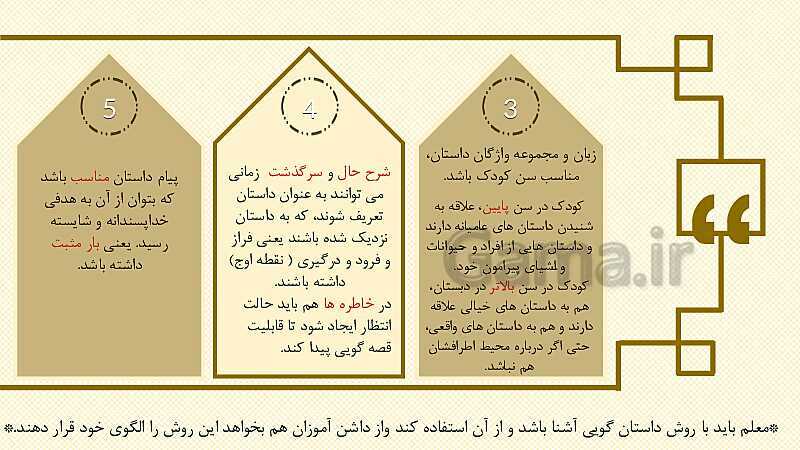 3
زبان و مجموعه واژگان داستان،
مناسب سن کودک باشد.
کودک در سن پایین، علاقه به
شنیدن داستان های عامیانه دارند
و داستان هایی از افراد و حیوانات
و اشیای پیرامون خود.
کودک در سن بالاتر در دبستان،
هم به داستان های خیالی علاقه
دارند و هم به داستان های واقعی،
حتی اگر درباره محیط اطرافشان
هم نباشد.
4
شرح حال و سرگذشت زمانی
می توانند به عنوان داستان
تعریف شوند، که به داستان
نزدیک شده باشند یعنی فراز
و فرود و درگیری ( نقطه اوج)
داشته باشند.
در خاطره ها هم باید حالت
انتظار ایجاد شود تا قابلیت
قصه گویی پیدا کند.
5
پیام داستان مناسب باشد
که بتوان از آن به هدفی
خداپسندانه و شایسته
رسید. یعنی بار مثبت
داشته باشد.
Gama.ir
*معلم باید با روش داستان گویی آشنا باشد و از آن استفاده کند واز داشن آموزان هم بخواهد این روش را الگوی خود قرار دهند.*